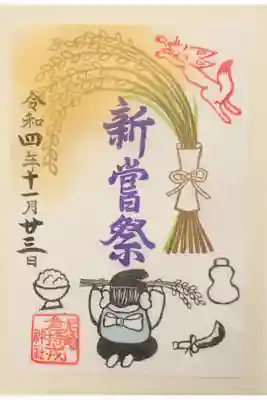 新嘗祭
令和四年十一月廿三日